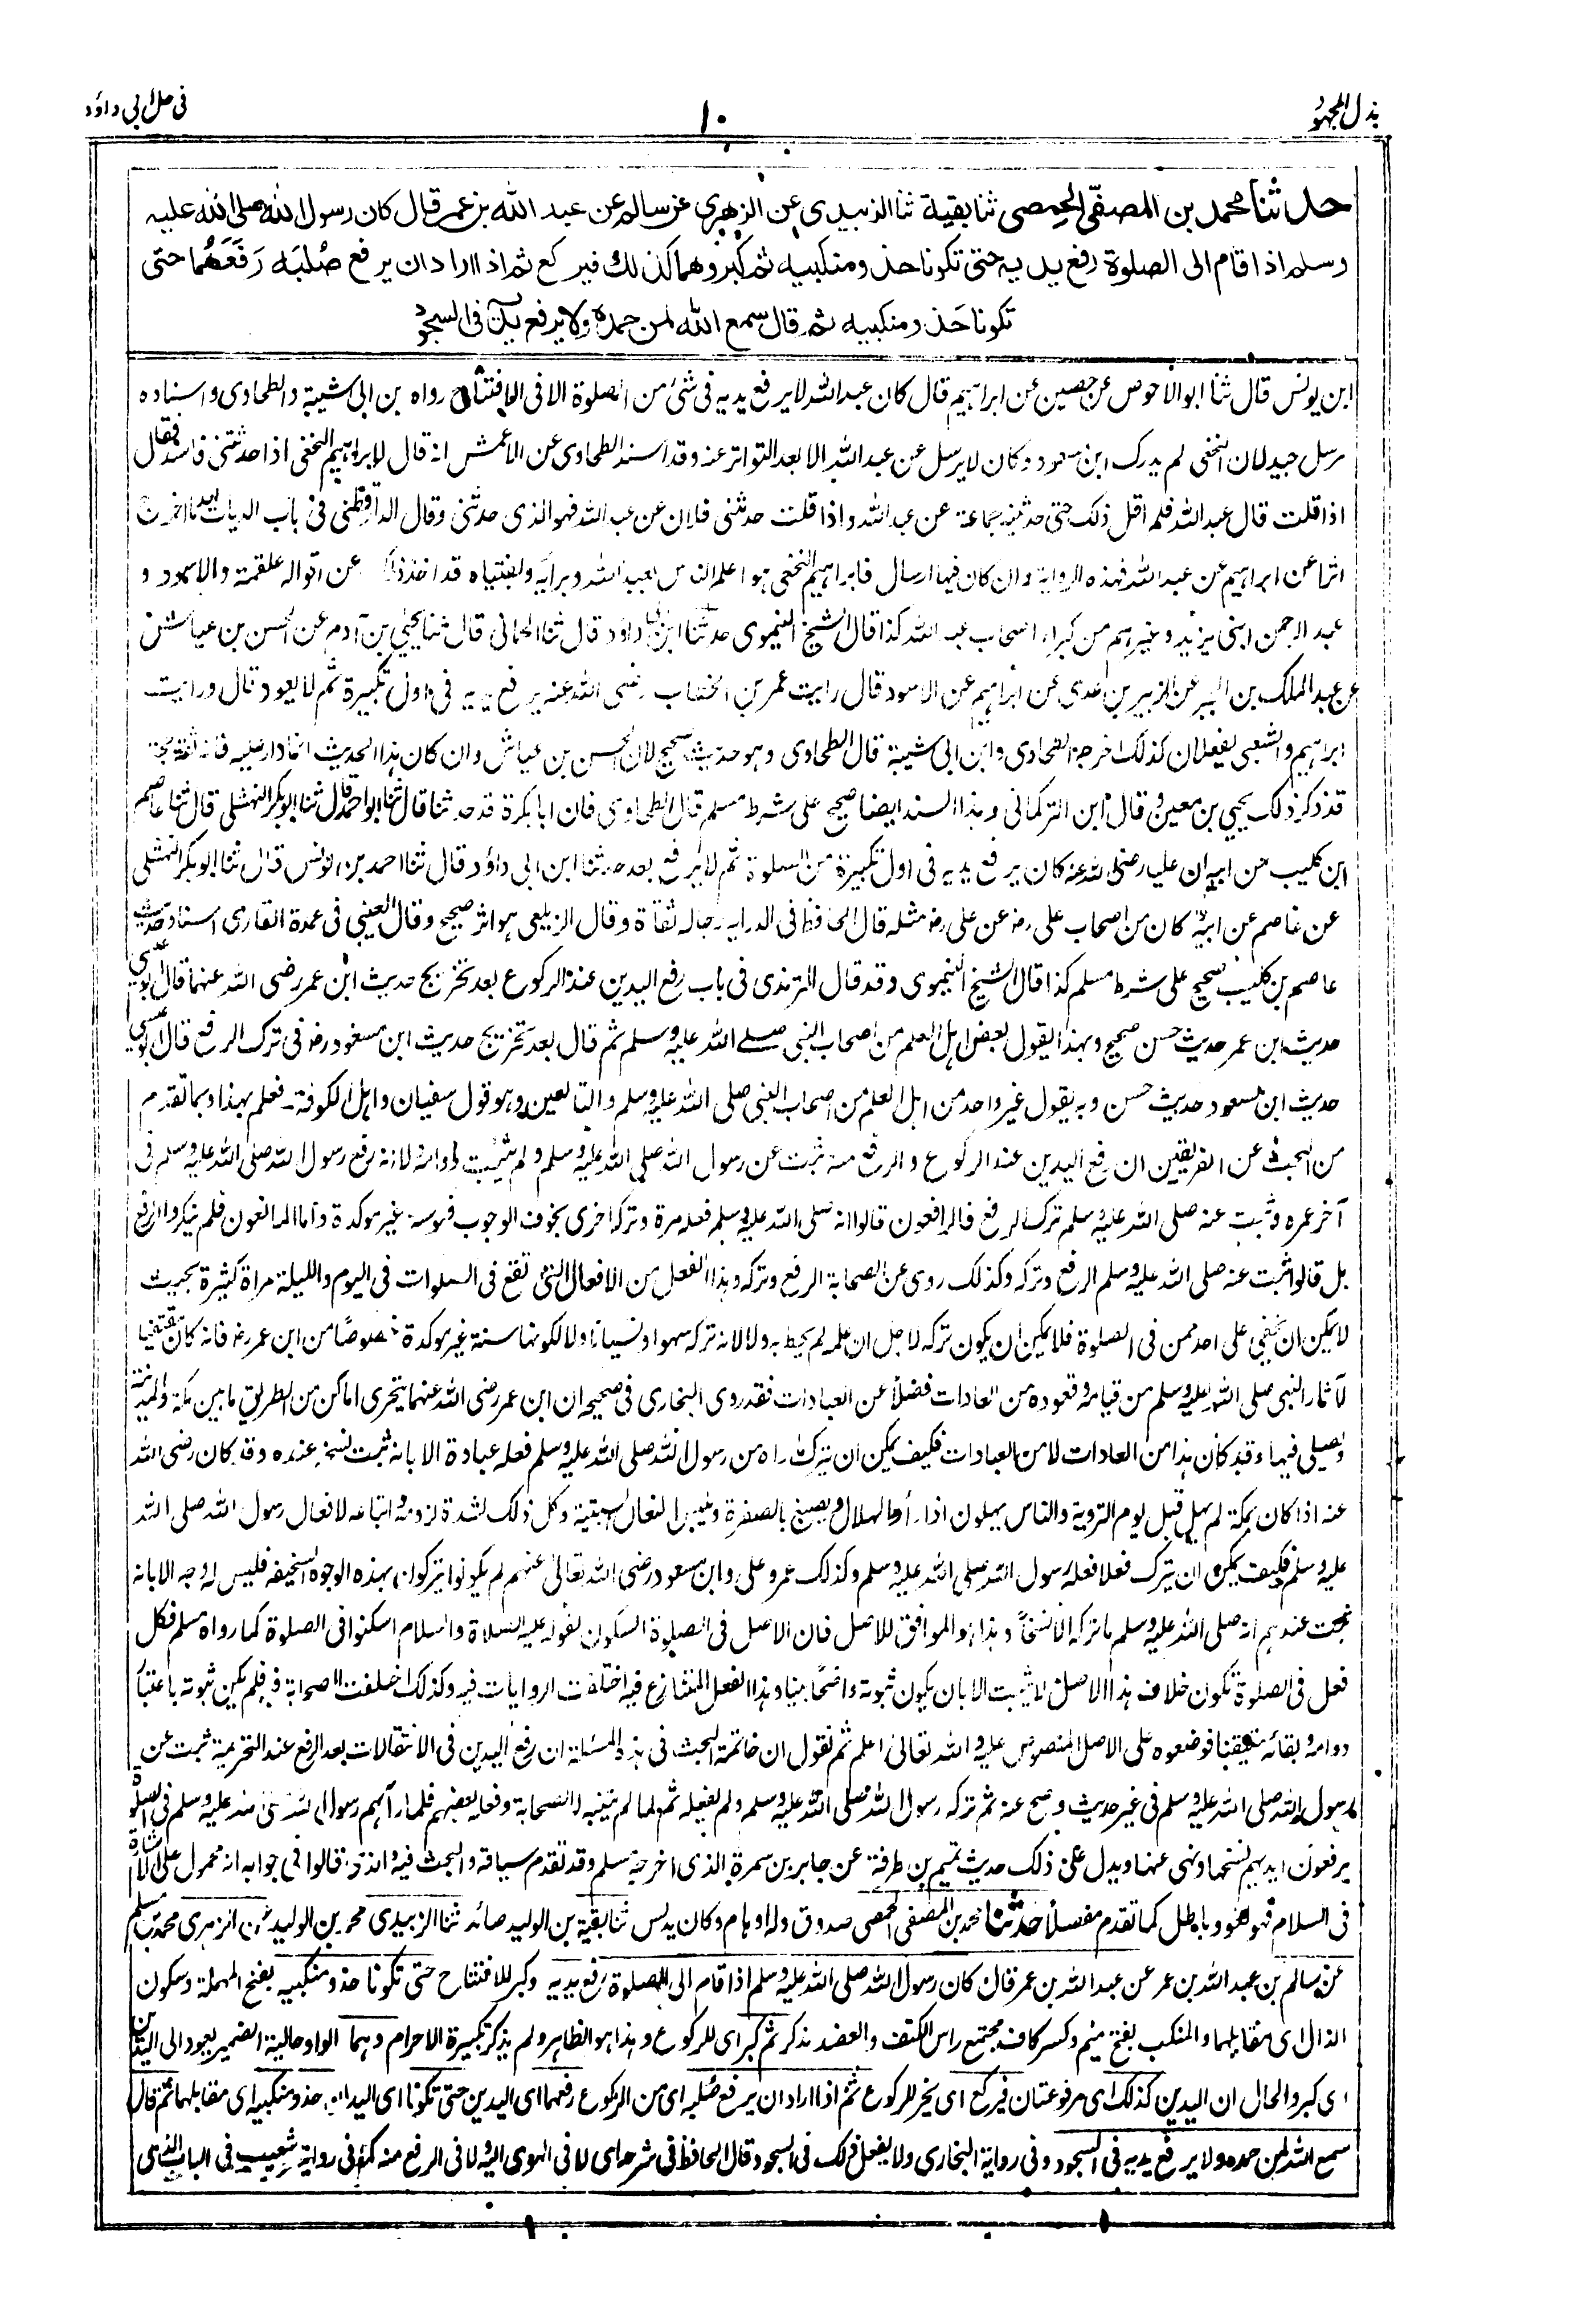 بذل المجهود
١٠
في حل ابي داؤد
حدثنا محمد بن المصفى الحمصي ثنا بقية ثنا الزبيدي عن الزهري عن سالم عن عبد الله بن عمر قال كان رسول الله صلى الله عليه
وسلم اذا قام الى الصلوة رفع يديه حتى تكونا حذو منكبيه ثم كبر وهما كذلك فيركع ثم اذا اراد ان يرفع صُلبَه رَفَعَهُما حتى
تكونا حَذو منكبيه ثم قال سمع الله لمن حمده ولا يرفع يديه في السجود
ابن يونس قال ثنا ابو الاحوص عن حصين عن ابراهيم قال كان عبد الله لا يرفع يديه في شئ من الصلوة الا في الافتتاح رواه بن ابي شيبة والطحاوي واسناده
مرسل جيد لان النخعي لم يدرك ابن مسعود وكان لا يرسل عن عبد الله الا بعد التواتر عنه وقد اسند الطحاوي عن الاعمش انه قال لابراهيم النخعي اذا حدثتني فاسند فقال
اذا قلت قال عبد الله فلم اقل ذلك حتى حدثنيه جماعة عن عبد الله واذا قلت حدثني فلان عن عبد الله فهو الذي حدثني وقال الدارقطني في باب الديات بعد ما اخرج
اثرا عن ابراهيم عن عبد الله فهذه الرواية وان كان فيها ارسال فابراهيم النخعي هو اعلم الناس بعبد الله وبرايه وبفتياه قد اخذ ذلك عن اخواله علقمة والاسود و
عبد الرحمن ابني يزيد وغيرهم من كبراء اصحاب عبد الله كذا قال الشيخ النيموي حدثنا ابن ابي داؤد قال ثنا الحماني قال ثنا يحيى بن آدم عن الحسن بن عياش
عن عبد الملك بن ابجر عن الزبير بن عدي عن ابراهيم عن الاسود قال رايت عمر بن الخطاب رضى الله عنه يرفع يديه في اول تكبيرة ثم لا يعود قال ورايت
ابراهيم والشعبي يفعلان كذلك اخرجه الطحاوي وابن ابي شيبة قال الطحاوي وهو حديث صحيح لان الحسن بن عياش وان كان هذا الحديث انما دار عليه فانه ثقة حجة
قد ذكر ذلك يحيى بن معين وقال ابن التركماني وهذا السند ايضا صحيح على شرط مسلم قال الطحاوي فان ابا بكرة قد حدثنا قال ثنا ابو احمد قال ثنا ابو بكر النهشلي قال ثنا عاصم
ابن كليب عن ابيه ان عليا رضى الله عنه كان يرفع يديه في اول تكبيرة من الصلوة ثم لا يرفع بعد حدثنا ابن ابي داؤد قال ثنا احمد بن يونس قال ثنا ابو بكر النهشلي
عن عاصم عن ابيه كان من اصحاب على رض عن على رض مثله قال الحافظ في الدراية رجاله ثقاة وقال الزيلعي هو اثر صحيح وقال العيني في عمدة القاري اسناد حديث
عاصم بن كليب صحيح على شرط مسلم كذا قال الشيخ النيموي وقد قال الترمذي في باب رفع اليدين عند الركوع بعد تخريج حديث ابن عمر رضى الله عنهما قال ابو عيسى
حديث ابن عمر حديث حسن صحيح وبهذا يقول بعض اهل العلم من اصحاب النبي صلے الله عليه وسلم ثم قال بعد تخريج حديث ابن مسعود رض في ترك الرفع قال ابو عيسى
حديث ابن مسعود حديث حسن وبه يقول غير واحد من اهل العلم من اصحاب النبي صلى الله عليه وسلم والتابعين وهو قول سفيان واهل الكوفة۔ فعلم بهذا وبما تقدم
من البحث عن الفريقين ان رفع اليدين عند الركوع والرفع منه ثبت عن رسول الله صلى الله عليه وسلم ولم يثبت دوامه ولا انه رفع رسول الله صلى الله عليه وسلم في
آخر عمره وثبت عنه صلى الله عليه وسلم ترك الرفع فالرافعون قالوا انه صلى الله عليه وسلم فعله مرة وتركه اخرى بخوف الوجوب فهو سنة غير موكدة واما المانعون فلم ينكروا الرفع
بل قالوا ثبت عنه صلى الله عليه وسلم الرفع وتركه وكذلك روى عن الصحابة الرفع وتركه وهذا الفعل من الافعال التي تقع في الصلوات في اليوم والليلة مراة كثيرة بحيث
لا يمكن ان يخفى على احد ممن في الصلوة فلا يمكن ان يكون تركه لاجل ان علمه لم يحيط به ولا لانه تركه سهوا ونسيانا ولا لكونها سنة غير موكدة خصوصًا من ابن عمر رض فانه كان مقتفيا
لآثار النبي صلى الله عليه وسلم من قيامه وقعوده من العادات فضلاً عن العبادات فقد روى البخاري في صحيحه ان ابن عمر رضى الله عنهما يتحرى اماكن من الطريق ما بين مكة والمدينة
ويصلي فيها وقد كان هذا من العادات لا من العبادات فكيف يمكن ان يترك ما راه من رسول الله صلى الله عليه وسلم فعله عبادة الا بانه ثبت نسخه عنده وقد كان رضى الله
عنه اذا كان بمكة لم يهل قبل يوم التروية والناس يهلون اذا رأوا الهلال ويصبغ بالصفرة ويلبس النعال السبتية وكل ذلك لشدة لزومه واتباعه لافعال رسول الله صلى الله
عليه وسلم فكيف يمكن ان يترك فعلا فعله رسول الله صلى الله عليه وسلم وكذلك عمر وعلى وابن مسعود رضى الله تعالى عنهم لم يكونوا يتركوا بهذه الوجوه السخيفه فليس له وجه الا بانه
ثبت عندهم انه صلى الله عليه وسلم ما تركه الا نسخاً وهذا هو الموافق للاصل فان الاصل في الصلوة السكون لقوله عليه الصلاة والسلام اسكنوا في الصلوة كما رواه مسلم فكل
فعل في الصلوة تكون خلاف هذا الاصل لا يثبت الا بان يكون ثبوته واضحًا بينا وهذا الفعل المتنازع فيه اختلفت الروايات فيه وكذلك اختلفت الصحابة فيه فلم يكن ثبوته باعتبار
دوامه وبقائه متيقنا فوضعوه على الاصل المنصوص عليه والله تعالى اعلم ثم نقول ان خاتمة البحث في هذه المسئلة ان رفع اليدين في الانتقالات بعد الرفع عند التحريمة ثبت عن
رسول الله صلى الله عليه وسلم في غير حديث وصح عنه ثم تركه رسول الله صلى الله عليه وسلم ولم يفعله ثم لما لم يتنبه له الصحابة وفعله بعضهم فلما رآهم رسول الله صلى الله عليه وسلم في الصلوة
يرفعون ايديهم نسخها ونهى عنها ويدل على ذلك حديث تميم بن طرفة عن جابر بن سمرة الذي اخرجه مسلم وقد تقدم سياقه والبحث فيه وانه قالوا في جوابه انه محمول على الاشارة
في السلام فهو لغو وباطل كما تقدم مفصلاً حدثنا محمد بن المصفى الحمصي صدوق وله اوهام وكان يدلس ثنا بقية بن الوليد صائد ثنا الزبيدي محمد بن الوليد عن الزهري محمد بن مسلم
عن سالم بن عبد الله بن عمر عن عبد الله بن عمر قال كان رسول الله صلى الله عليه وسلم اذا قام الى الصلوة رفع يديه وكبر للافتتاح حتى تكونا حذو منكبيه بفتح المهملة وسكون
الذال اى مقابلهما والمنكب بفتح ميم وكسر كاف مجتمع راس الكتف والعضد مذكر ثم كبر اى للركوع وهذا هو الظاهر ولم يذكر تكبيرة الاحرام وهما الواو حالية الضمير يعود الى اليدين
اى كبر والحال ان اليدين كذلك اى مرفوعتان فيركع اى يخر للركوع ثم اذا اراد ان يرفع صُلبه اى من الركوع رفعهما اى اليدين حتى تكونا اى اليدان حذو منكبيه اى مقابلهما ثم قال
سمع الله لمن حمده ولا يرفع يديه في السجود وفي رواية البخاري ولا يفعل ذلك في السجود قال الحافظ في شرحه اى لا في الهوى اليه ولا في الرفع منه كما في رواية شعيب في الباب الذي